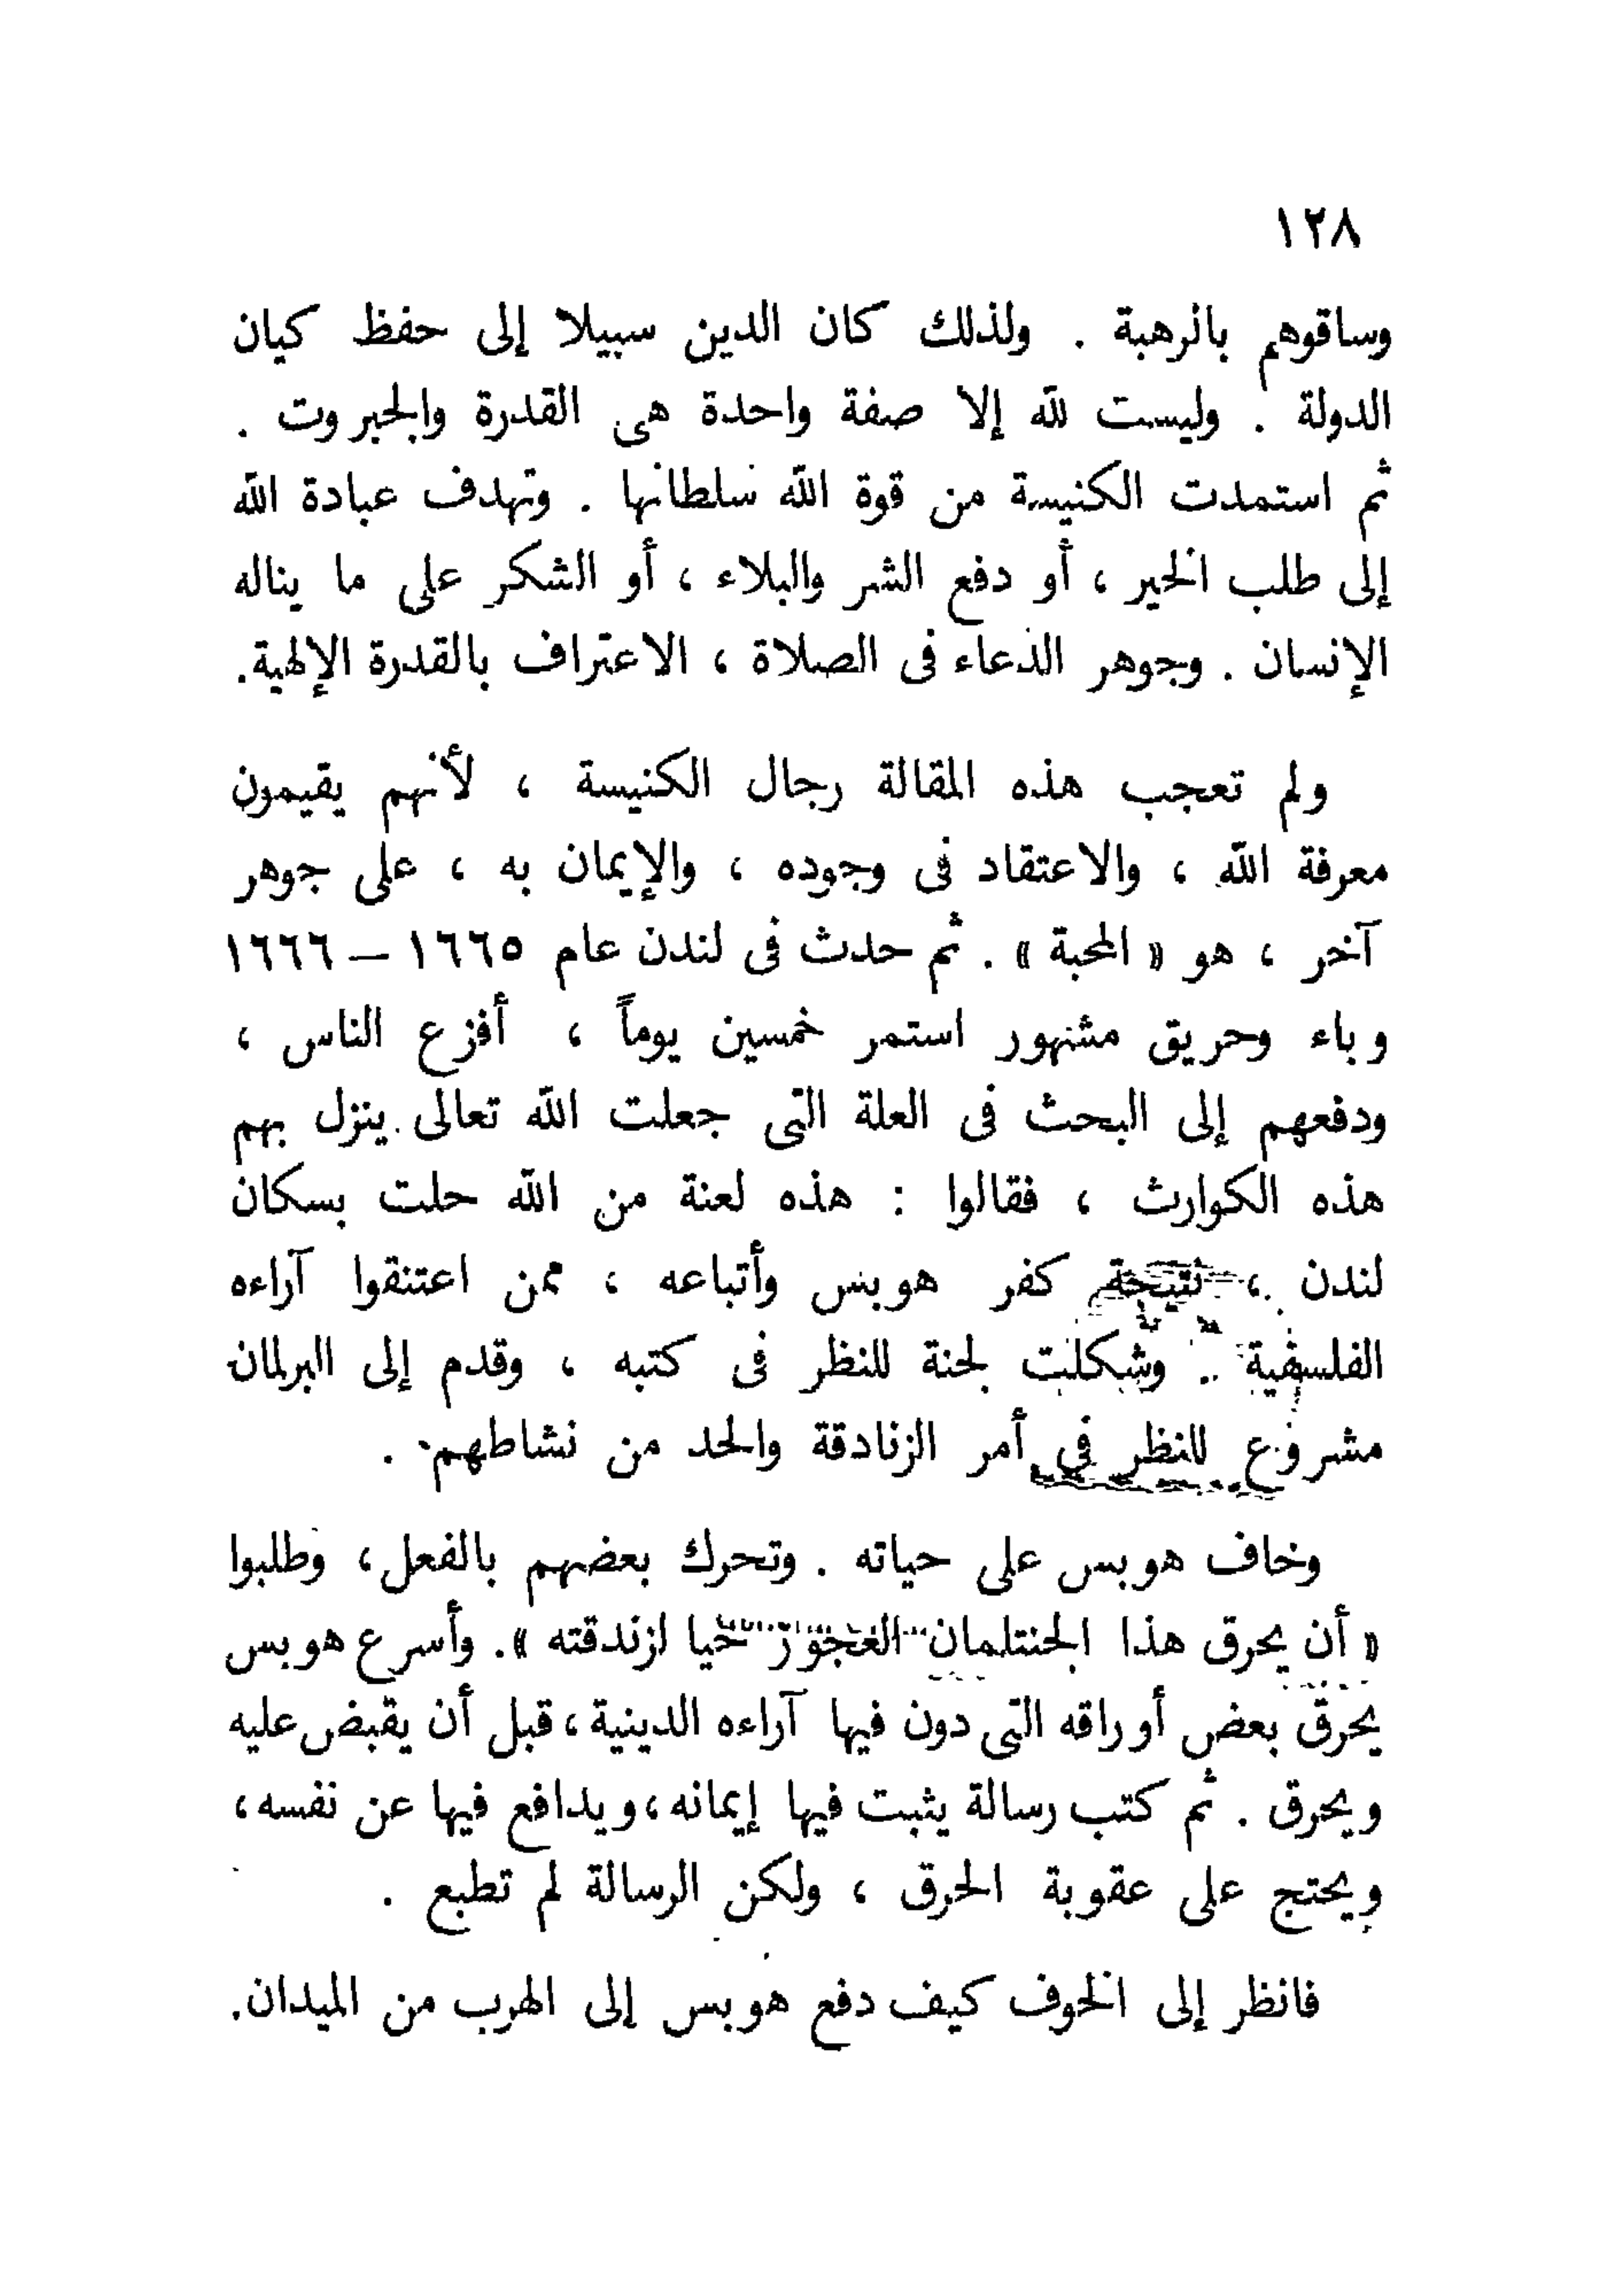 ١٢٨
وساقوهم بالرهبة . ولذلك كان الدين سبيلا إلى حفظ كيان
الدولة . وليست لله إلا صفة واحدة هى القدرة والجبروت .
ثم استمدت الكنيسة من قوة الله سلطانها . وتهدف عبادة الله
إلى طلب الخير ، أو دفع الشر والبلاء ، أو الشكر على ما يناله
الإنسان . وجوهر الدعاء فى الصلاة ، الاعتراف بالقدرة الإلهية.
ولم تعجب هذه المقالة رجال الكنيسة ، لأنهم يقيمون
معرفة الله ، والاعتقاد فى وجوده ، والإيمان به ، على جوهر
آخر ، هو « المحبة » . ثم حدث فى لندن عام ١٦٦٥ – ١٦٦٦
وباء وحريق مشهور استمر خمسين يوماً ، أفزع الناس ،
ودفعهم إلى البحث فى العلة التى جعلت الله تعالى ينزل بهم
هذه الكوارث ، فقالوا : هذه لعنة من الله حلت بسكان
لندن ، نتيجة كفر هوبس وأتباعه ، ممن اعتنقوا آراءه
الفلسفية . وشكلت لجنة للنظر فى كتبه ، وقدم إلى البرلمان
مشروع للنظر فى أمر الزنادقة والحد من نشاطهم .
وخاف هوبس على حياته . وتحرك بعضهم بالفعل ، وطلبوا
« أن يحرق هذا الجنتلمان العجوز حيا لزندقته » . وأسرع هوبس
يحرق بعض أوراقه التى دون فيها آراءه الدينية ، قبل أن يقبض عليه
ويحرق . ثم كتب رسالة يثبت فيها إيمانه ، ويدافع فيها عن نفسه ،
ويحتج على عقوبة الحرق ، ولكن الرسالة لم تطبع .
فانظر إلى الخوف كيف دفع هوبس إلى الهرب من الميدان.